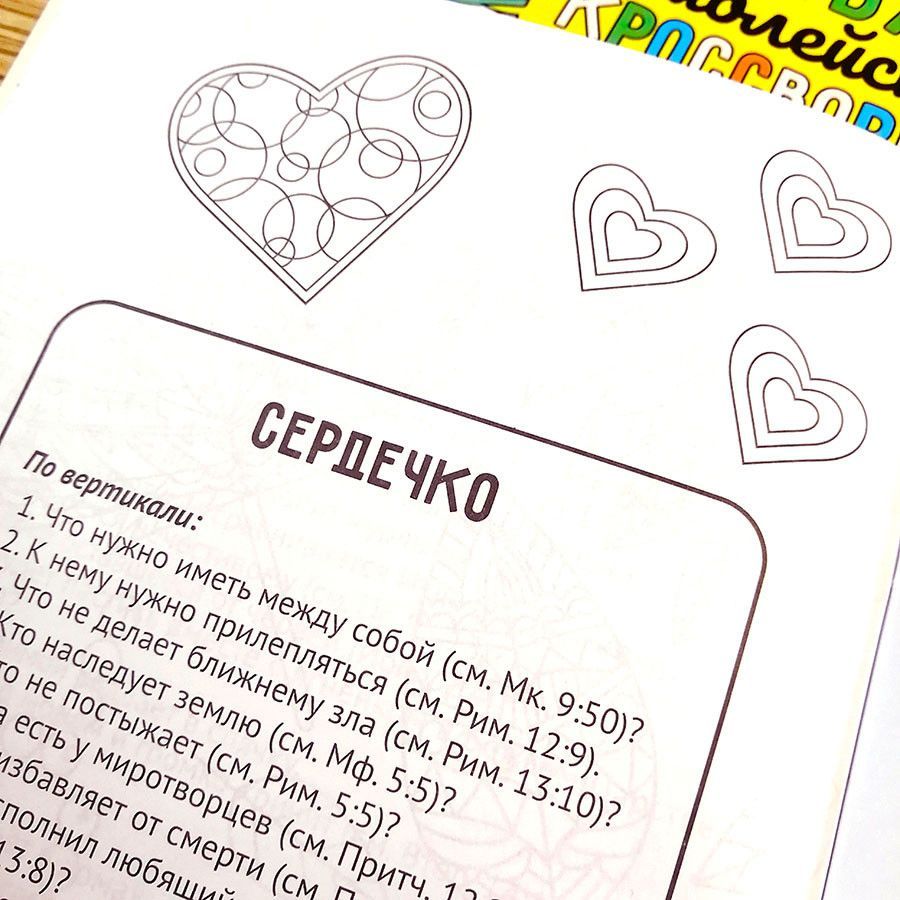 КРОССВОР
СЕРДЕЧКО
По вертикали:
1. Что нужно иметь между собой (см. Мк. 9:50)?
2. К нему нужно прилепляться (см. Рим. 12:9).
Что не делает ближнему зла (см. Рим. 13:10)?
Кто наследует землю (см. Мф. 5:5)?
то не постыжает (см. Рим. 5:5)?
а есть у миротворцев (см. Притч. 12
избавляет от смерти (см. П
сполнил любящий
13:8)?